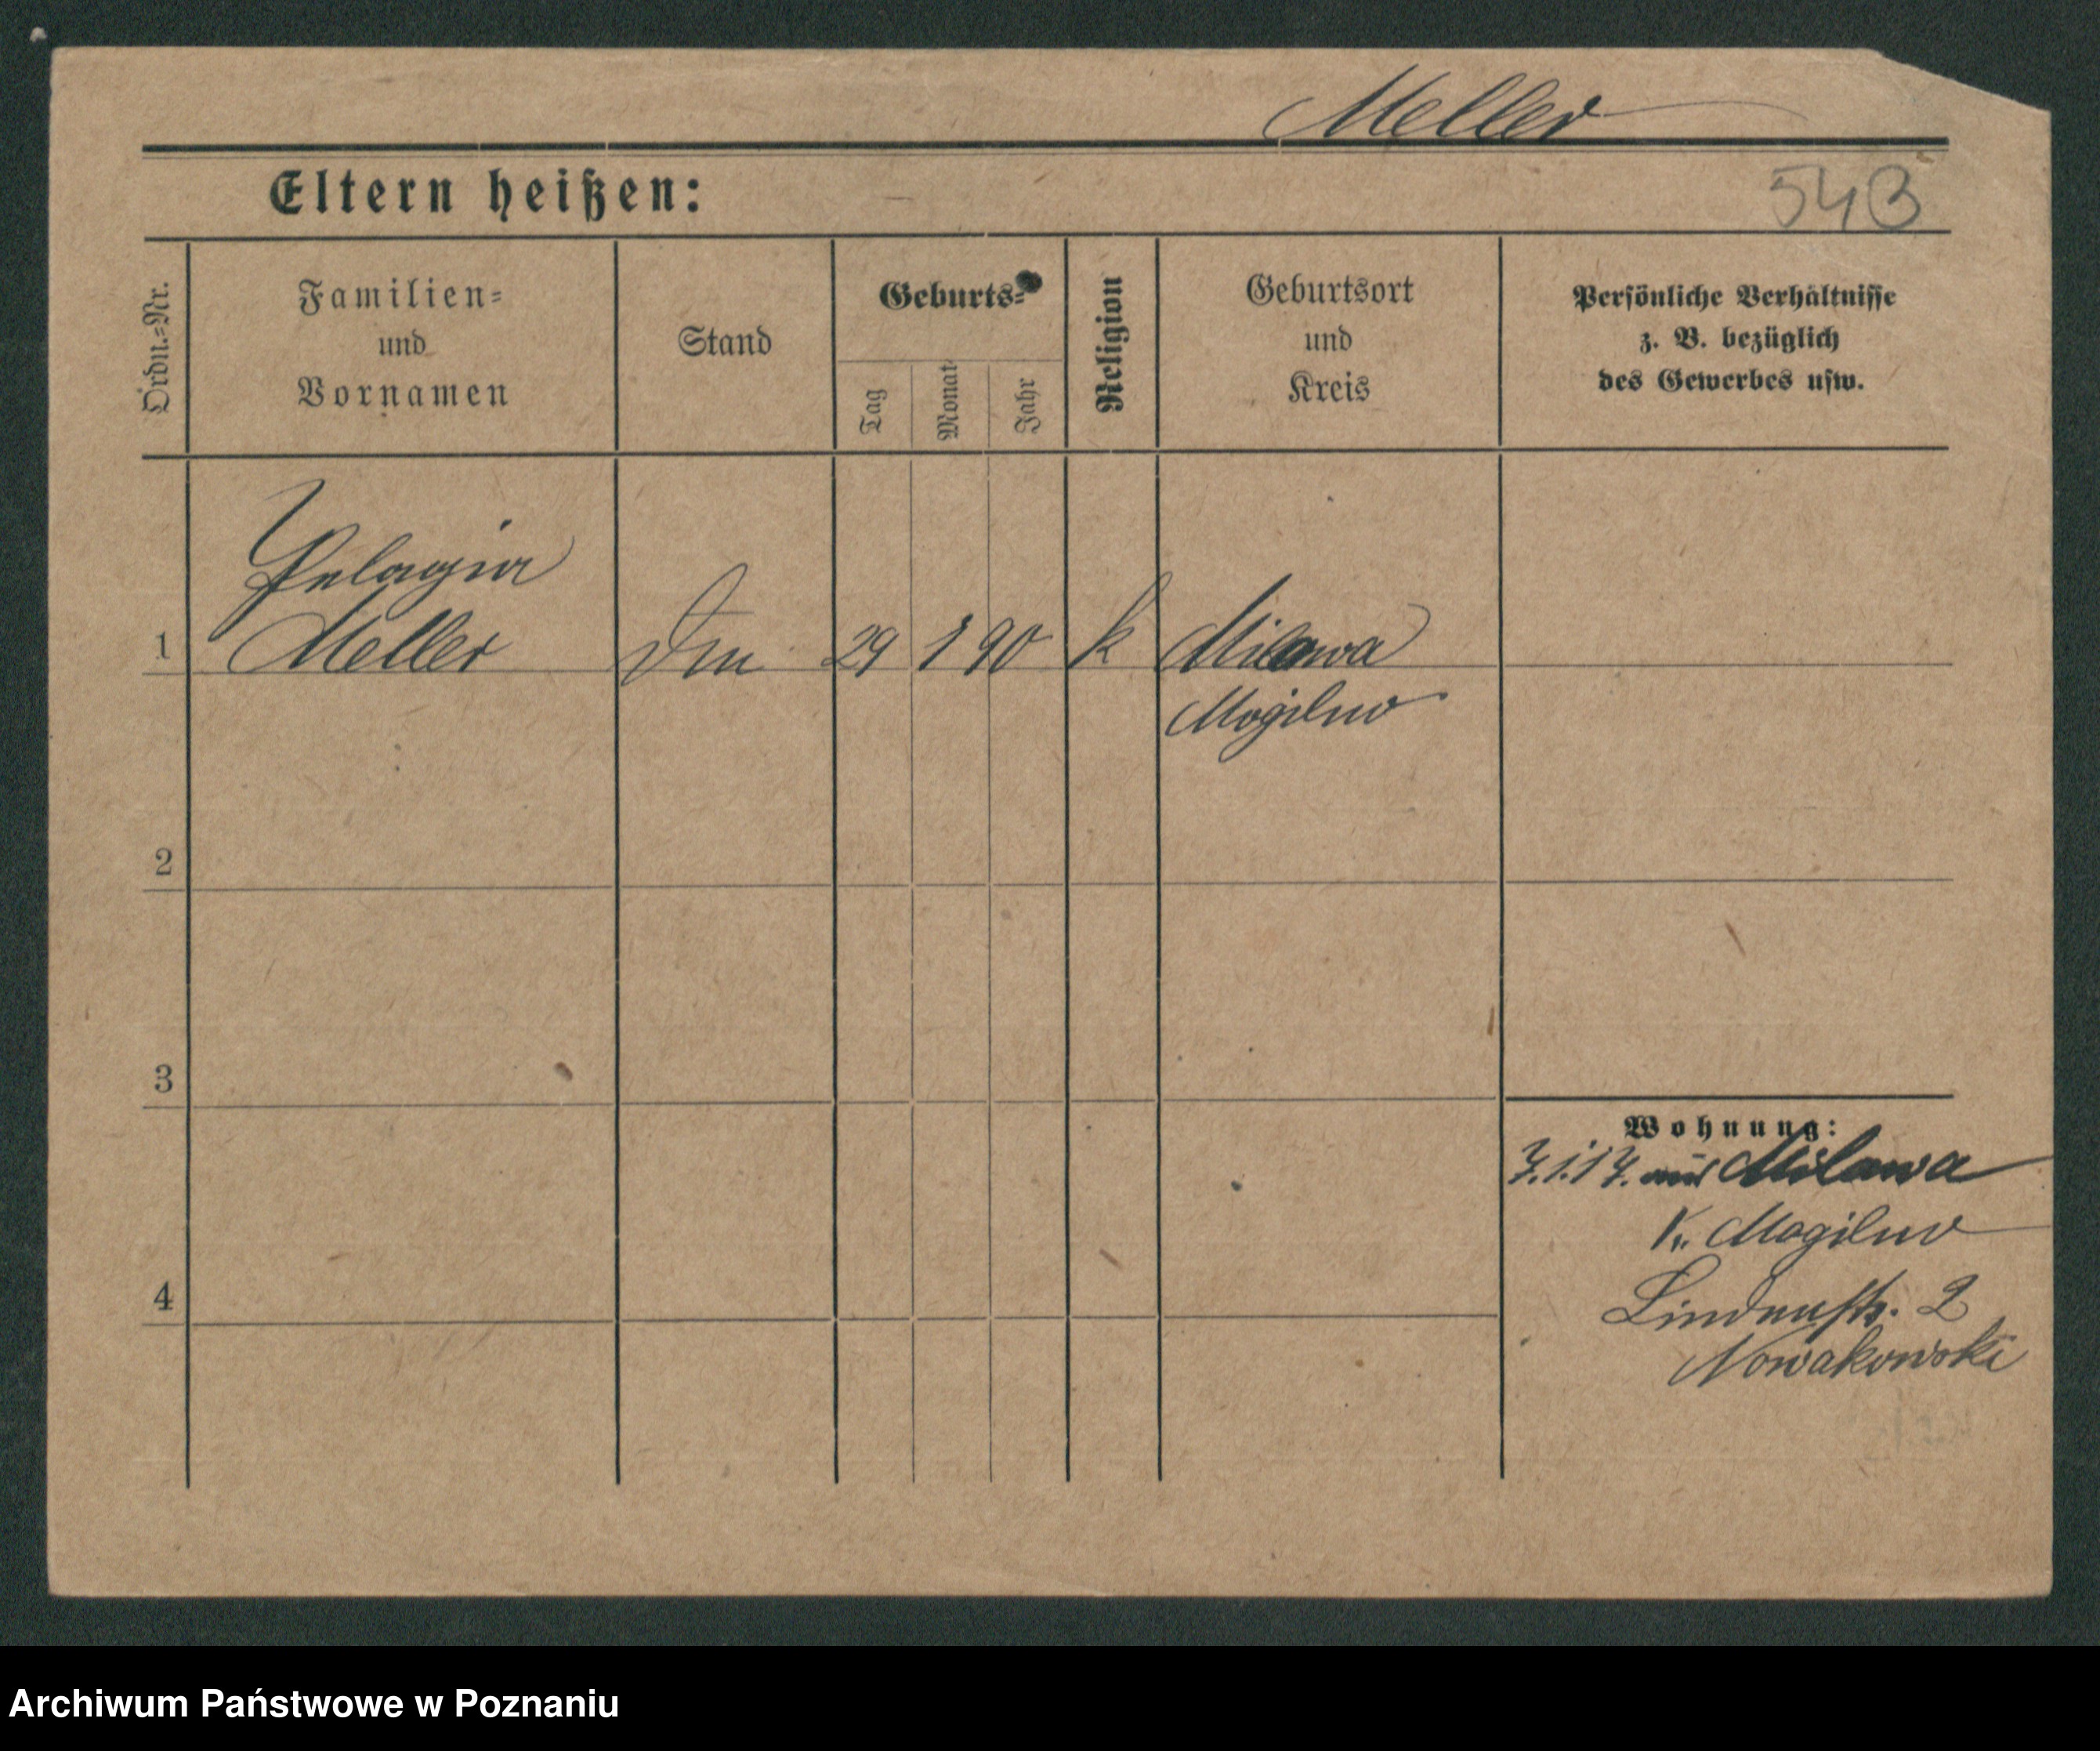 Meller
Eltern heißen:
543
Ordn.=Nr.
Familien=
und
Vornamen
Stand
Geburts=
Tag
Monat
Jahr
Religion
Geburtsort
und
Kreis
Persönliche Verhältnisse
z. B. bezüglich
des Gewerbes usw.
Pelagia
1 Meller 29 1 90 k Milawa
Mogilno
2
3
4
Wohnung:
7.1.17. aus Milawa
K. Mogilno
Lindenstr. 2
Nowakowski
Archiwum Państwowe w Poznaniu